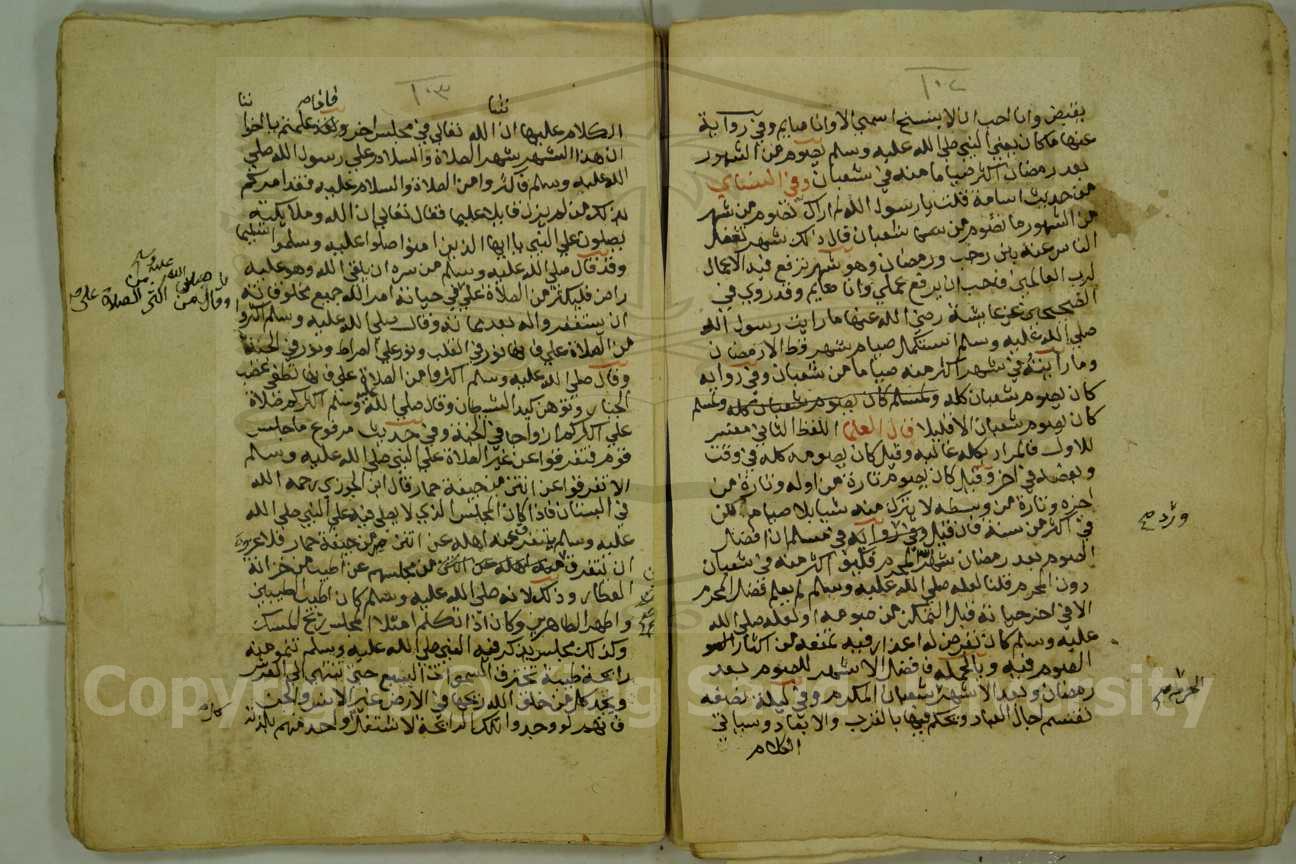 ١٠٢
يقبض وانا احب ان لا ينسخ اسمي الا وانا صايم وفي رواية
عنها ما كان يعني النبي صلى الله عليه وسلم يصوم من الشهور
بعد رمضان اكثر صياما منه في شعبان وفي النسائي
من حديث اسامة قلت يا رسول الله لم اراك تصوم من شهر
من الشهور ما تصوم من شعبان قال ذالك شهر تغفل
الناس عنه بين رجب ورمضان وهو شهر ترفع فيه الاعمال
لرب العالمين فنحب ان يرفع عملي وانا صايم وقد روي في
الصحيحين عن عايشة رضي الله عنها ما رايت رسول الله
صلى الله عليه وسلم استكمل صيام شهر قط الا رمضان
وما رايته في شهر اكثر منه صياما من شعبان وفي رواية
كان يصوم شعبان كله ولمسلم كان يصوم شعبان كله ولمسلم
كان يصوم شعبان الا قليلا قال العلما اللفظ الثاني مفسر
للاول فالمراد بكله غالبه وقيل كان يصومه كله في وقت
وبعضه في اخر وقيل كان يصوم تارة من اوله وتارة من
اخره وتارة من وسطه لا يترك منه شيا بلا صيام لكن
في اكثر من سنة فان قيل وفي رواية في مسلم ان افضل
الصوم بعد رمضان شهر الله المحرم فكيف اكثر منه في شعبان
دون المحرم قلنا لعله صلى الله عليه وسلم لم يعلم فضل المحرم
الا في اخر حياته قبل التمكن من صومه او لعله صلى الله
عليه وسلم كان تعرض له اعذار فيه تمنعه من اكثار
الصوم فيه وبالجملة فافضل الاشهر للصوم بعد
رمضان وبعد الاشهر شعبان المكرم وفي ليلة نصفه
تقسم جال العباد ويحكم فيها بالقرب والابعاد وسياتي
الكلام
ورد
الحرم
١٠٣
الكلام عليها ان الله تعالى في مجلس اخر وقد علمتم يا اخوا
ان هذا الشهر شهر الصلاة والسلام على رسول الله صلى
الله عليه وسلم فاكثروا من الصلاة والسلام عليه فقد امركم
بذلك من لم يزل قابلا عليما فقال تعالى ان الله وملايكته
يصلون على النبي يا ايها الذين امنوا صلوا عليه وسلموا تسليما
وقد قال صلى الله عليه وسلم من سره ان يلقى الله وهو عليه
راض فليكثر من الصلاة علي في حياته امر الله جميع مخلوقاته
ان يستغفروا له بعد مماته وقال صلى الله عليه وسلم اكثروا
من الصلاة علي فانها نور في القلب ونور على الصراط ونور في الجنة
وقال صلى الله عليه وسلم اكثروا من الصلاة علي فانها تطفي غضب
الجبار وتوهن كيد الشيطان وقال صلى الله وسلم اكثركم صلاة
علي اكثركم ازواجا في الجنة وفي حديث مرفوع ما جلس
قوم فتفرقوا عن غير الصلاة على النبي صلى الله عليه وسلم
الا تفرقوا عن انتن من جيفة حمار قال ابن الجوزي رحمه الله
في البستان فاذا كان المجلس الذي لا يصلى فيه على النبي صلى الله
عليه وسلم يتفرق عنه اهله عن انتن من جيفة حمار فلا غرو
ان يتفرق من مجلسهم عن اطيب من خزانة
العطار وذلك لانه صلى الله عليه وسلم كان اطيب الطيبين
واطهر الطاهرين وكان اذا تكلم امتلا المجلس ريح المسك
وكذلك مجلس يذكر فيه النبي صلى الله عليه وسلم تنمو منه
رايحة طيبة تخترق السموات السبع حتى تنتهي الى العرش
ويجد كل من خلق الله ريحها في الارض غير الانس والجن
فانهم لو وجدوا تلك الرائحة لاشتغل كل واحد منهم بلذته
وقال من اكثر الصلاة علي